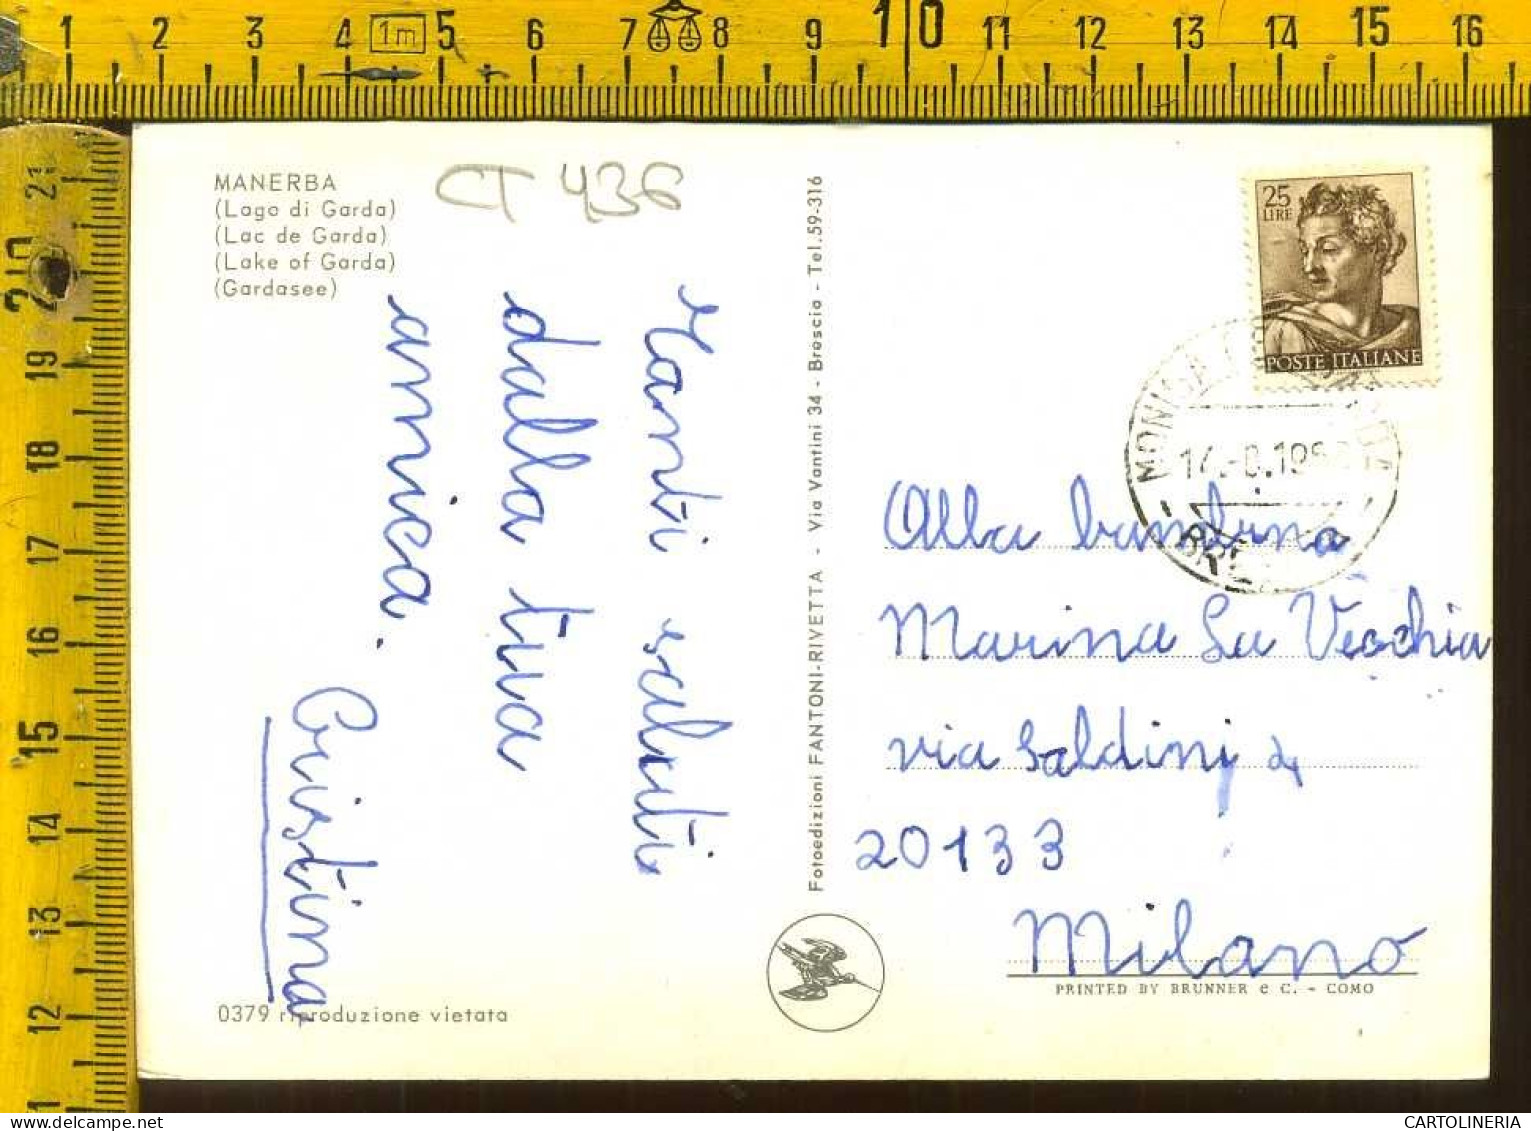 1 2 3 4 1m 5 6 7 8 9 10 11 12 13 14 15 16
21
20
19
18
17
16
15
14
13
12
1
MANERBA
(Lago di Garda)
(Lac de Garda)
(Lake of Garda)
(Gardasee)
CT 436
Tanti saluti
dalla tua
amica.
Cristina
0379 riproduzione vietata
Fotoedizioni FANTONI-RIVETTA - Via Vantini 34 - Brescia - Tel. 59-316
25
LIRE
POSTE ITALIANE
MONIGA
Alla bambina
Marina La Vecchia
via Saldini
20133
Milano
PRINTED BY BRUNNER e C. - COMO
CARTOLINERIA